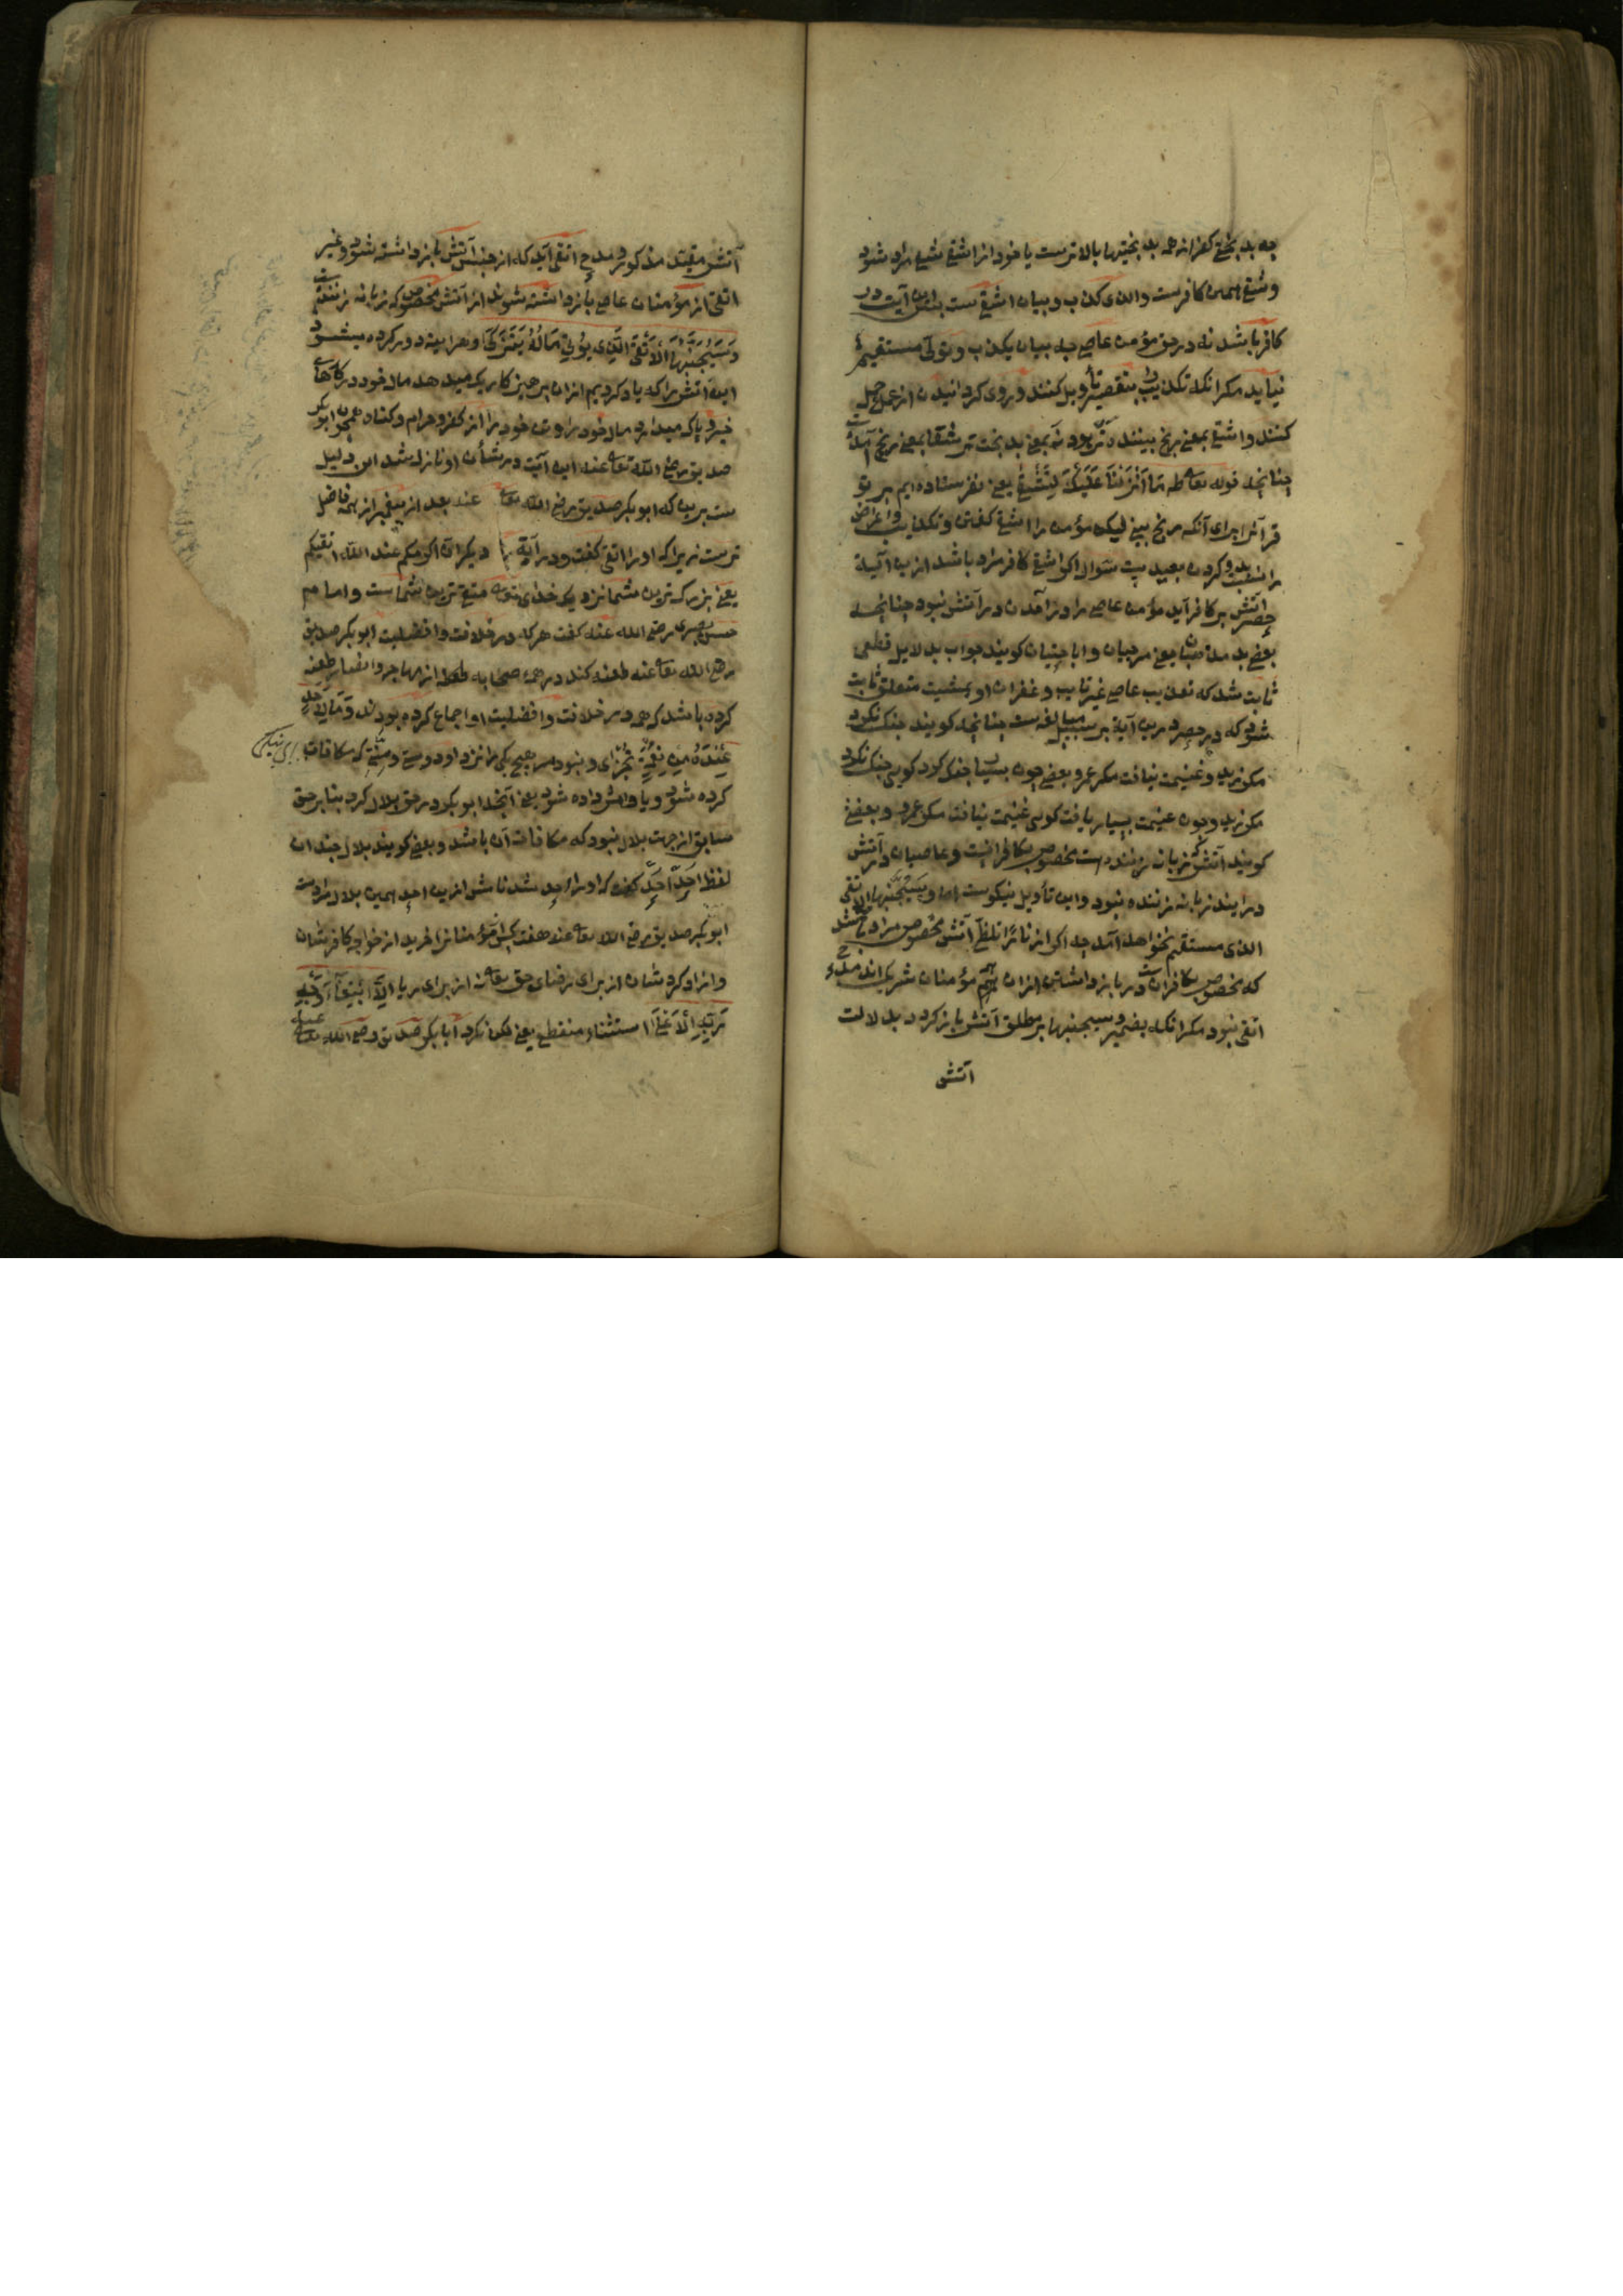 چه بد بختی کفر از همه بد بختیها بالاترست یا خود از اشقی شقی مراد شود
و شقی همین کافرست والذی کذب و بیان اشقی ست بدین آیت در
کافر باشد نه در حق مؤمن عاصی چه بیان یکذب و تولی مستقیم
نیاید مکر انکه تکذیب را بتقصیر تأویل کنند و روی کردانیدن از عمل حمل
کنند و اشقی بمعنی رنج بیننده تر بود نه بمعنی بد بخت تر شقا بمعنی رنج آمده
چنانچه قوله تعا طه مَا اَنْزَلْنَا عَلَیْكَ لِتَشْقٰی یعنی نفرستاده ایم بر تو
قرآن را برای آنکه رنج بینی لیکن مؤمن را اشقی کفتن و تکذیب و اعراض
را نسبت بدو کردن بعید ست سوال اکر اشقی کافر مراد باشد ازین آیت
حصر آتش بر کافر آید مؤمن عاصی را در آمدن در آتش نبود چنانچه
بعضی بد مذهبان یعنی مرجیان و اباحتیان کویند جواب بدلایل قطعی
ثابت شد که تعذیب عاصی غیر تایب و غفران او بمشیت متعلق ثابت
شود که حصر درین آیة بر سبیل مبالغه ست چنانچه کویند جنك نکرد
مکر زید و غنیمت نیافت مکر عمرو یعنی چون بسیار جنك کرد کویی جنك نکرد
مکر زید و چون غنیمت بسیار یافت کویی غنیمت نیافت مکر عمرو و بعضی
کویند آتش که زبانه زننده است مخصوص بکافرانست و عاصیان در آتش
درایند زبانه زننده نبود و این تأویل نیکوست اما و سیجنبها الاتقی
الذی مستقیم نخواهد آمد چه اکر از نارًا تلظی آتش مخصوص مراد باشد
که مخصوص بکافرانست در باز داشتن ازان همه مؤمنان شریك اند مدح
اتقی نبود مکر انکه بضمیر و سیجنبها بر مطلق آتش باز کردد بدلالت
آتش
آتش مقید مذکور و مدح اتقی آید که از جنس آتش باز داشته شود و غیر
اتقی از مؤمنان عاصی باز داشته شوند از آتش مخصوص که زبانه زننده ست
وَسَیُجَنَّبُهَا الْاَتْقَی الَّذِی یُؤْتِی مَالَهُ یَتَزَکّٰی و هرآینه دور کرده میشود
این آتش را که یاد کردیم ازان پرهیز کاریکه میدهد مال خود در کارهای
خیر و پاك میدارد مال خود را و تن خود را از کفر و حرام و کناه همچون ابوبکر
صدیق رضی اللّه تعا عنه این آیت در شأن او نازل شد این دلیل
ست برین که ابوبکر صدیق رضی اللّه تعا عنه بعد از پیغمبر از همه فاضل
ترست زیرا که او را اتقی کفت و در آیة دیکر انّ اکرمکم عند اللّه اتقیکم
یعنی بزرکترین شما نزدیك خدای تعا متقی ترین شماست و امام
حسن بصری رضی الله عنه کفت هر که در خلافت و افضلیت ابوبکر صدیق
رضی الله تعا عنه طعنه کند در همه صحابه طعنه از مهاجر و انصار طعنه
کرده باشد که همه در خلافت و افضلیت او اجماع کرده بودند وَمَا لِاَحَدٍ
عِنْدَهُ مِنْ نِعْمَةٍ تُجْزٰی و نبود مر هیچ یکی را نزد او دوستی و منتی که مکافات
کرده شود و پاداش داده شود یعنی آنچه ابوبکر در حق بلال کرد بنا بر حق
سابق از جهت بلال نبود که مکافات آن باشد و بعضی کویند بلال چندان
لفظ احد احد کفت که او را احد شد نامش ازین احد همین بلال مرادست
ابوبکر صدیق رضی الله تعا عنه هفت کس مؤمنانرا خرید از خواجه کافر شان
و ازاد کرد شان از برای رضای حق تعا نه از برای ریا اِلَّا ابْتِغَاءَ وَجْهِ
رَبِّهِ الْاَعْلٰی استثناء منقطع یعنی لیکن نکرد ابا بکر صدیق رضی الله تعا عنه